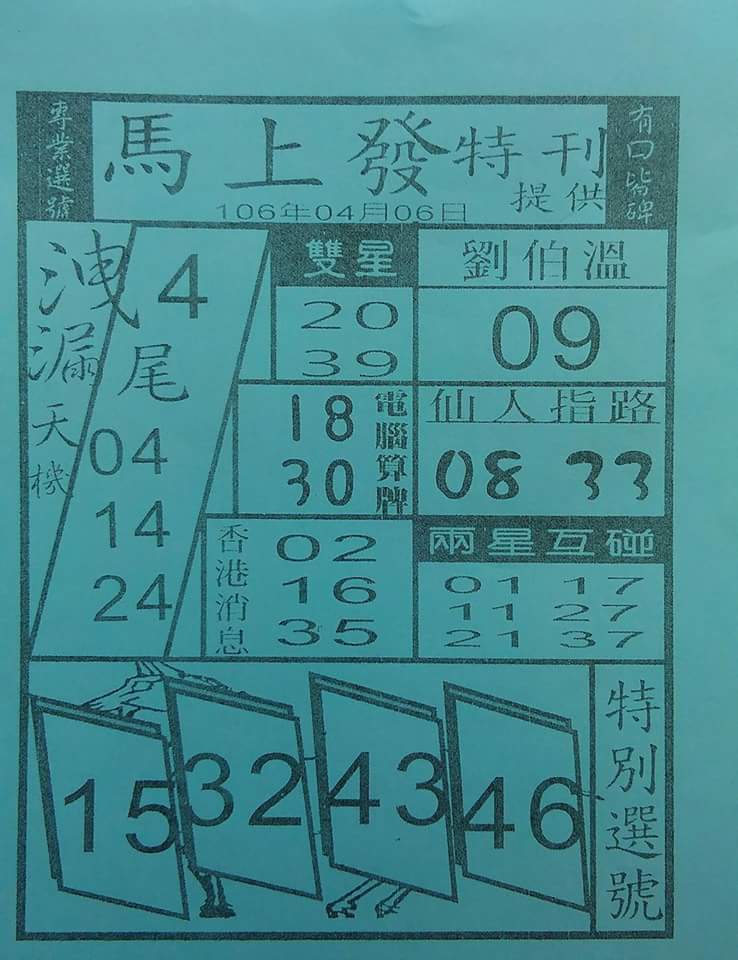 專業選號
馬上發特刊
提供
有口皆碑
106年04月06日
洩漏天機
4
尾
04
14
24
雙星
20
39
劉伯溫
09
18
30
電腦算牌
仙人指路
08 33
香港消息
02
16
35
兩星互碰
01 17
11 27
21 37
15
32
43
46
特別選號